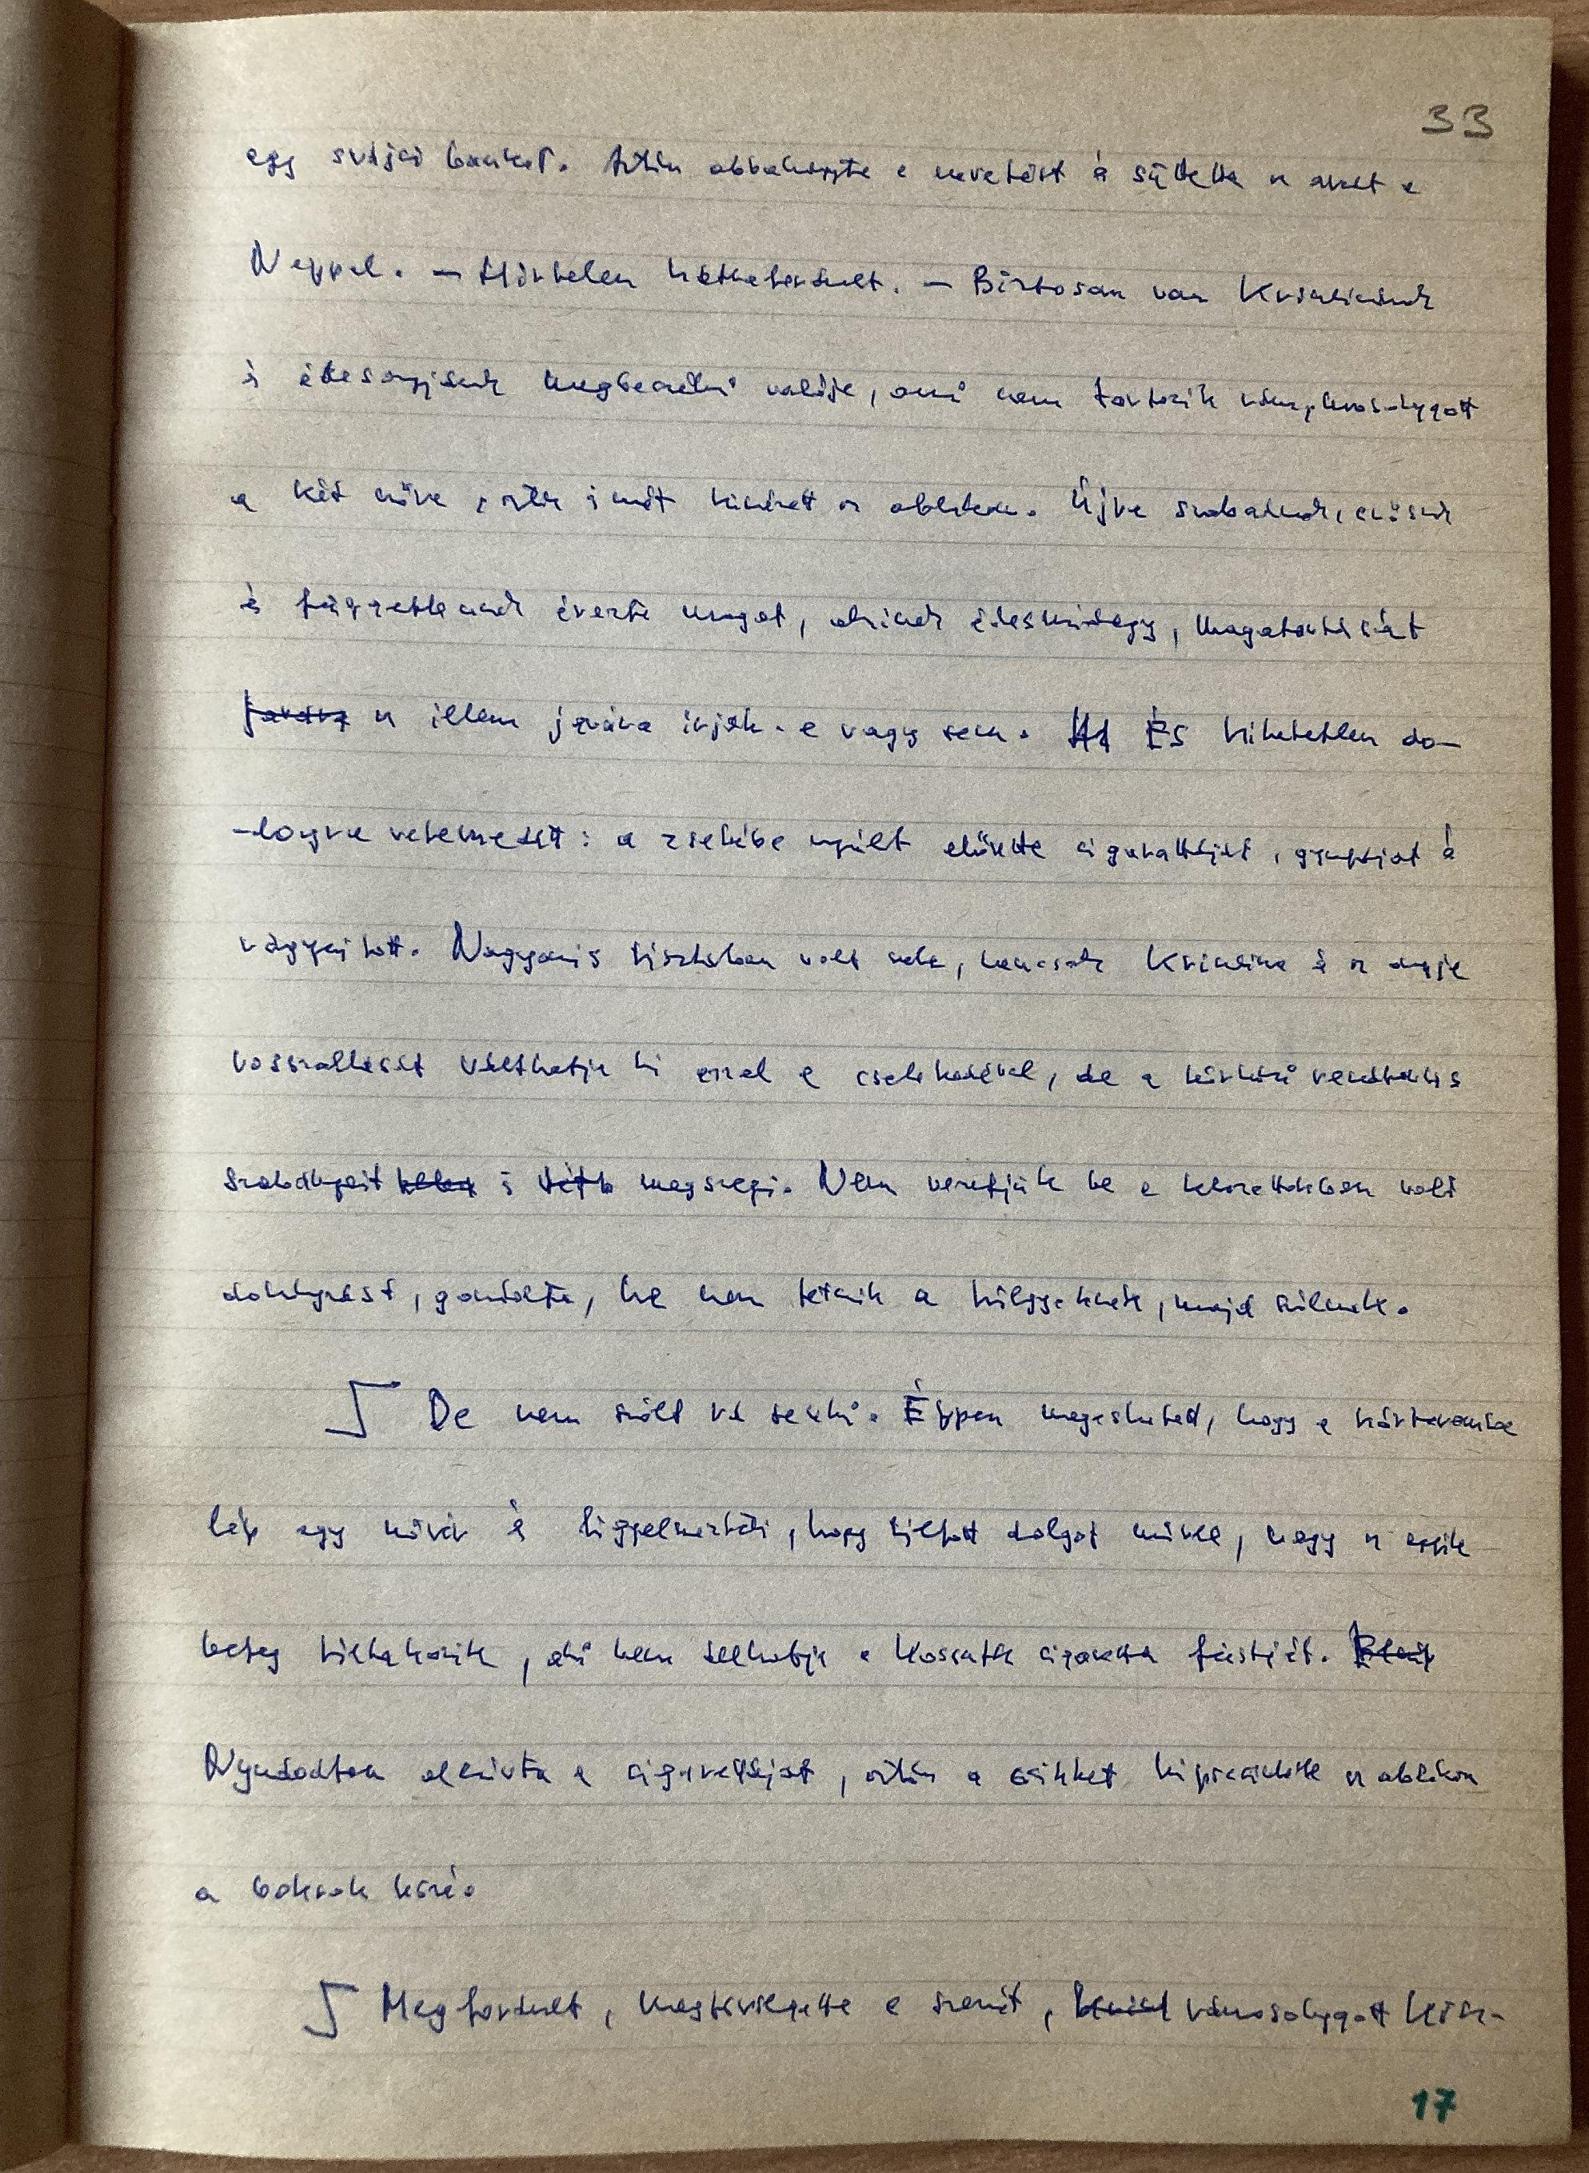 33
egy svájci bankot. Aztán abbahagyta a nevetést és süttette az arcát a
Nappal. – Hirtelen hátrafordult. – Biztosan van Krisztinának
és édesanyjának megbeszélni valója, ami nem tartozik rám, mosolygott
a két nőre, aztán ismét kinézett az ablakon. Újra szabadnak, erősnek
és függetlennek érezte magát, akinek édesmindegy, magatartását
javára az illem javára írják-e vagy sem. És hihetetlen do-
-logra vetemedett: a zsebébe nyúlt elővette cigarettáját, gyufáját és
rágyujtott. Nagyonis tisztában volt vele, nemcsak Krisztina és az anyja
rosszallását válthatja ki ezzel a cselekedetével, de a kórházi rendtartás
szabályait is megszegi. Nem veretjük be a kórteremben való
dohányzást, gondolta, ha nem tetszik a hölgyeknek, majd szólnak.
De nem szólt rá senki. Éppen megeshetett, hogy a kórterembe
lép egy nővér és figyelmezteti, hogy tiltott dolgot művel, vagy az egyik
beteg tiltakozik, aki nem állhatja a Kossuth cigaretta füstjét.
Nyugodtan elszívta a cigarettáját, aztán a csikket kipöckölte az ablakon
a bokrok közé.
Megfordult, megtörölgette a szemét, rámosolygott Krisz-
17